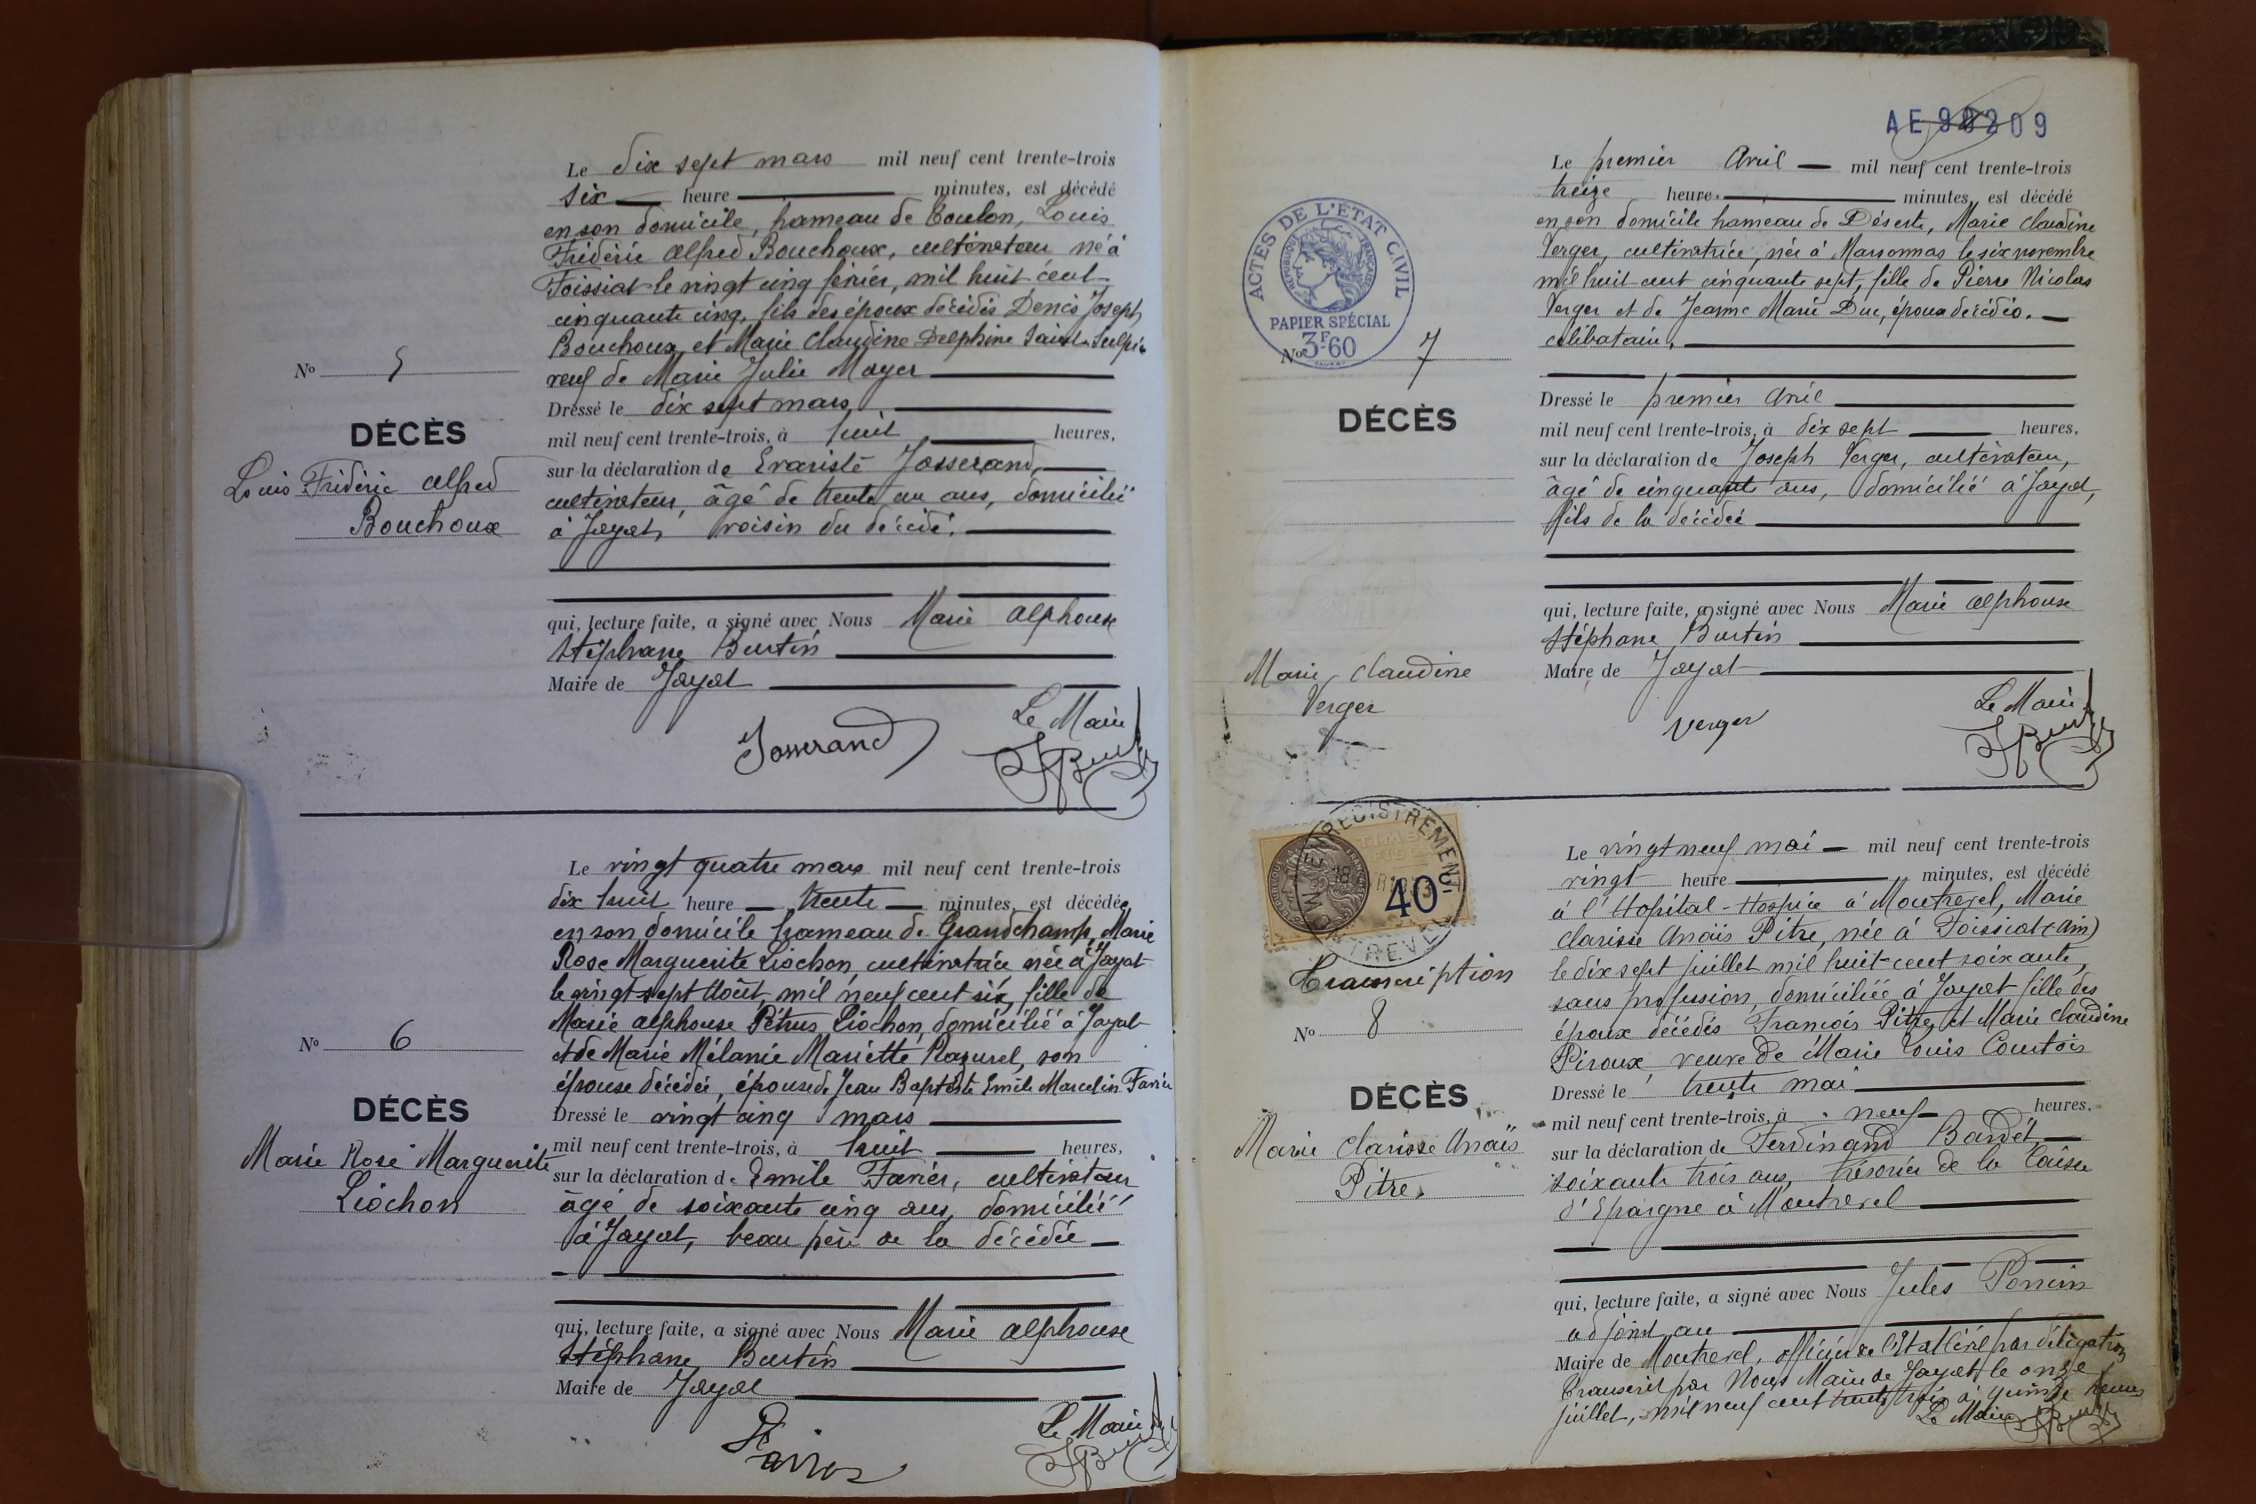 Le dix sept mars mil neuf cent trente-trois
six heure minutes, est décédé
en son domicile, hameau de Toulon, Louis
Frédéric Alfred Bouchoux, cultivateur né à
Foissiat le vingt cinq février, mil huit cent
cinquante cinq, fils des époux décédés Denis Joseph
Bouchoux et Marie Claudine Delphine Saint-Sulpice
veuf de Marie Julie Mayer
Nº 5
Dressé le dix sept mars
DÉCÈS
mil neuf cent trente-trois, à huit heures,
Louis Frédéric Alfred
Bouchoux
sur la déclaration de Evariste Josserand,
cultivateur, âgé de trente un ans, domicilié
à Jayat, voisin du décédé.
qui, lecture faite, a signé avec Nous Marie Alphonse
Stéphane Burtin
Maire de Jayat
Le Maire
Josserand
Le vingt quatre mars mil neuf cent trente-trois
dix huit heure trente minutes, est décédée
en son domicile hameau de Grandchamp, Marie
Rose Marguerite Liochon, cultivatrice née à Jayat
le vingt sept Août, mil neuf cent six, fille de
Marie Alphonse Pétrus Liochon, domicilié à Jayat
et de Marie Mélanie Mariette Razurel, son
épouse décédée, épouse de Jean Baptiste Emile Marcelin Favier
Nº 6
DÉCÈS
Marie Rose Marguerite
Liochon
Dressé le vingt cinq mars
mil neuf cent trente-trois, à huit heures,
sur la déclaration de Emile Favier, cultivateur
âgé de soixante cinq ans, domicilié
à Jayat, beau père de la décédée
qui, lecture faite, a signé avec Nous Marie Alphonse
Stéphane Burtin
Maire de Jayat
Le Maire
AE 98209
Le premier Avril mil neuf cent trente-trois
treize heure minutes, est décédé
en son domicile hameau de Déserte, Marie Claudine
Verger, cultivatrice, née à Marsonnas le six novembre
mil huit cent cinquante sept, fille de Pierre Nicolas
Verger et de Jeanne Marie Duc, époux décédés.
célibataire,
ACTES DE L'ETAT CIVIL
RÉPUBLIQUE FRANÇAISE
PAPIER SPÉCIAL
3F60
Nº 7
DÉCÈS
Marie Claudine
Verger
Dressé le premier Avril
mil neuf cent trente-trois, à dix sept heures,
sur la déclaration de Joseph Verger, cultivateur,
âgé de cinquante ans, domicilié à Jayat,
fils de la décédée
qui, lecture faite, a signé avec Nous Marie Alphonse
Stéphane Burtin
Maire de Jayat
Le Maire
Verger
Le vingt neuf mai mil neuf cent trente-trois
vingt heure minutes, est décédé
à l'Hôpital-Hospice à Montrevel, Marie
Clarisse Anaïs Pitre, née à Foissiat (Ain)
le dix sept juillet mil huit cent soixante,
sans profession, domiciliée à Jayat fille des
époux décédés François Pitre, et Marie Claudine
Piroux veuve de Marie Louis Courtois
ENREGISTREMENT
MONTREVEL
40
Transcription
Nº 8
DÉCÈS
Marie Clarisse Anaïs
Pitre
Dressé le trente mai
mil neuf cent trente-trois, à neuf heures,
sur la déclaration de Ferdinand Bardet
soixante trois ans, trésorier de la Caisse
d'Epargne à Montrevel
qui, lecture faite, a signé avec Nous Jules Perrin
adjoint au
Maire de Montrevel, officier de l'Etat Civil par délégation
Transcrit par Nous Maire de Jayat, le onze
juillet, mil neuf cent trente trois à quinze heures
Le Maire